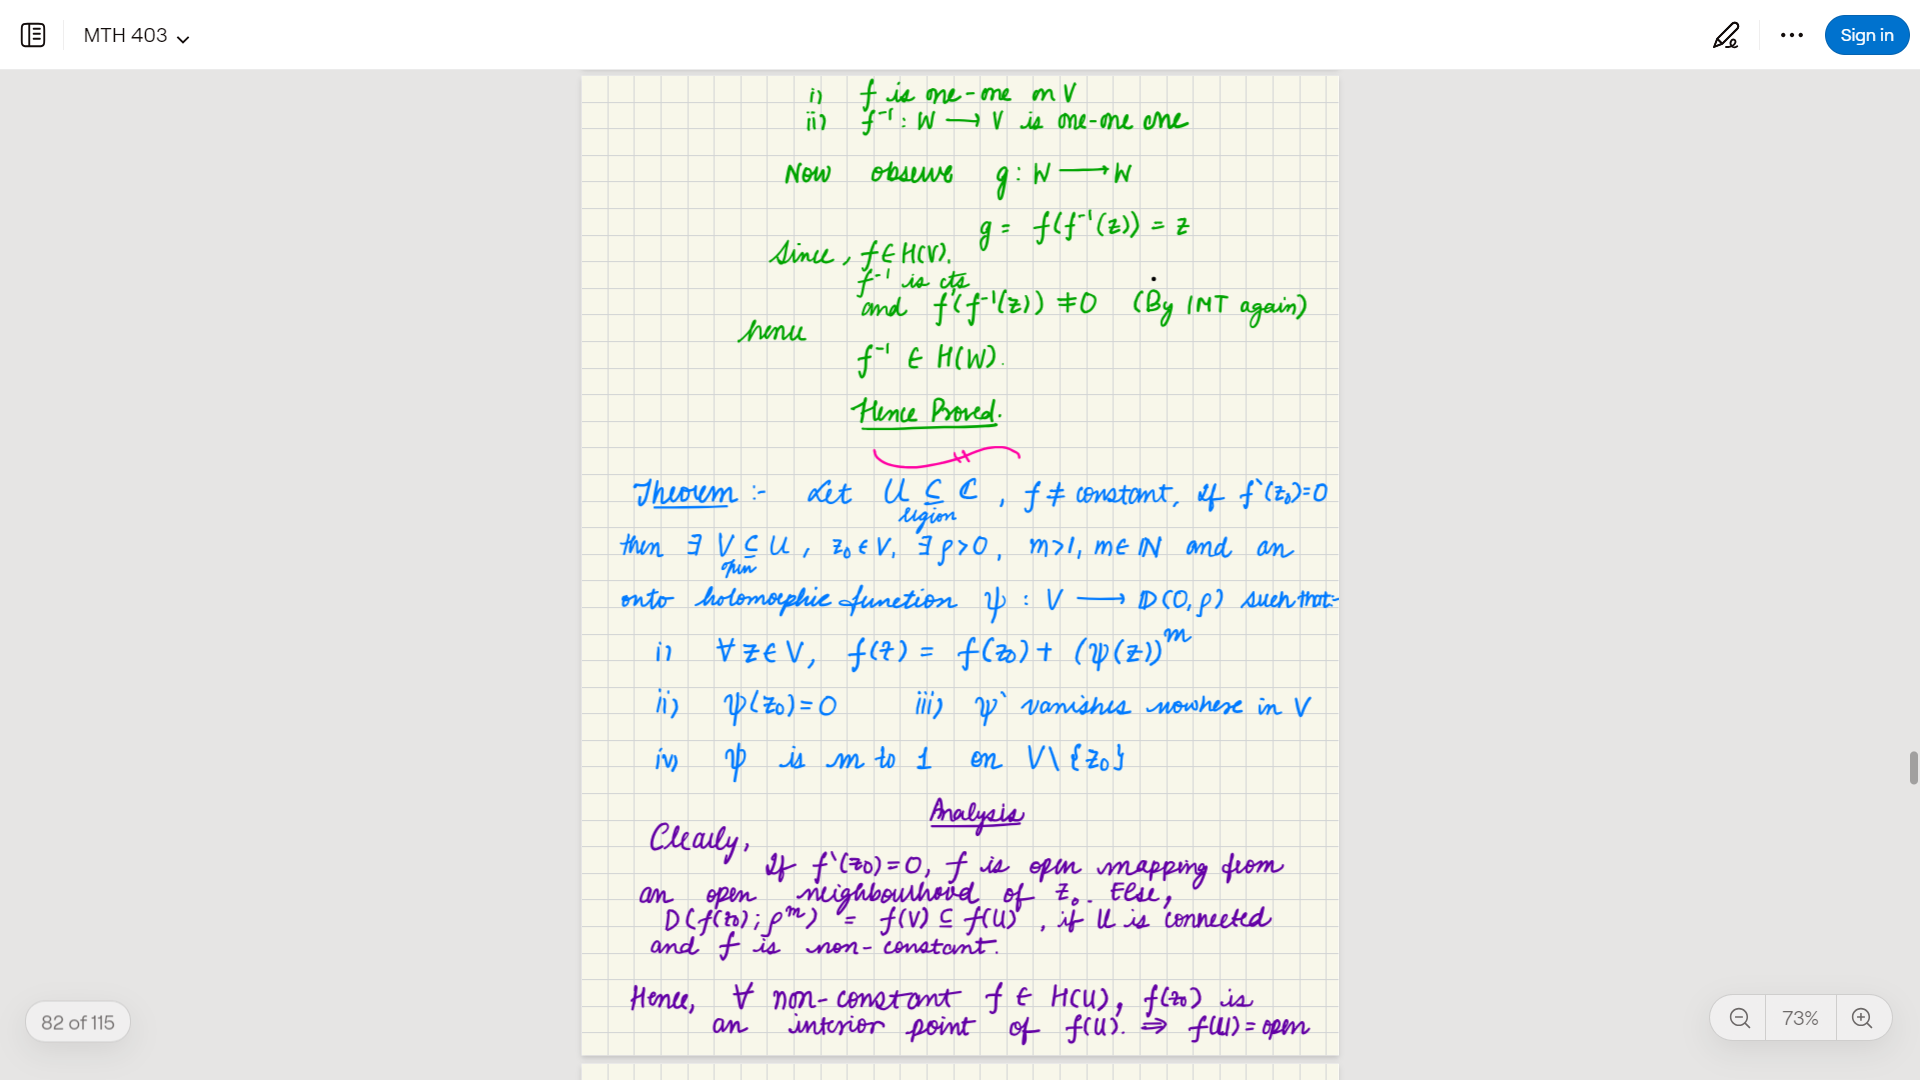 MTH 403
Sign in
i) f is one-one on V
ii) f⁻¹ : W ⟶ V is one-one one
Now observe g : W ⟶ W
g = f(f⁻¹(z)) = z
Since, f ∈ H(V).
f⁻¹ is cts
and f'(f⁻¹(z)) ≠ 0 (By IMT again)
hence
f⁻¹ ∈ H(W).
Hence Proved.
Theorem :- Let U ⊆ ℂ, f ≠ constant, if f`(z₀)=0
region
then ∃ V ⊆ U, z₀ ∈ V, ∃ ρ>0, m>1, m∈ ℕ and an
open
onto holomorphic function ψ : V ⟶ D(0,ρ) such that:-
i) ∀ z ∈ V, f(z) = f(z₀) + (ψ(z))ᵐ
ii) ψ(z₀)=0 iii) ψ` vanishes nowhere in V
iv) ψ is m to 1 on V\{z₀}
Analysis
Clearly,
If f`(z₀)=0, f is open mapping from
an open neighbourhood of z₀. Else,
D(f(z₀); ρᵐ) = f(V) ⊆ f(U), if U is connected
and f is non-constant.
Hence, ∀ non-constant f ∈ H(U), f(z₀) is
an interior point of f(U). ⇒ f(U)=open
82 of 115
73%